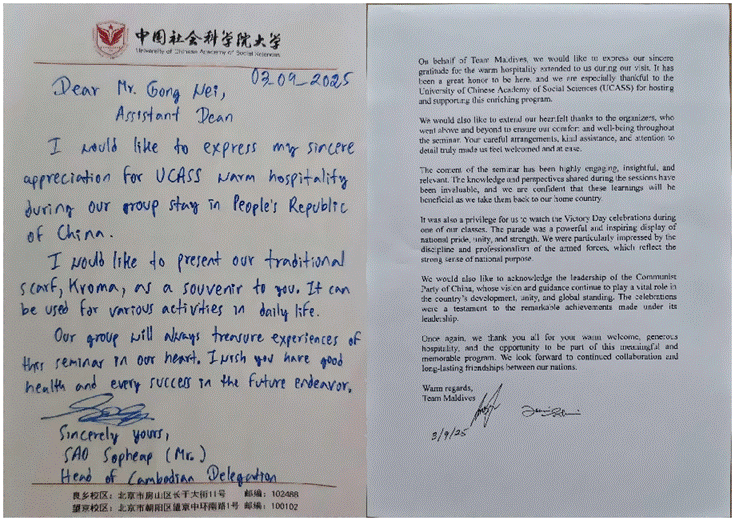 中国社会科学院大学
University of Chinese Academy of Social Sciences
03-09-2025
Dear Mr. Gong Wei,
Assistant Dean
I would like to express my sincere
appreciation for UCASS warm hospitality
during our group stay in People's Republic
of China.
I would like to present our traditional
scarf, Kroma, as a souvenir to you. It can
be used for various activities in daily life.
Our group will always treasure experiences of
this seminar in our heart. I wish you have good
health and every success in the future endeavor.
Sincerely yours,
SAO Sopheap (Mr.)
Head of Cambodian Delegation
良乡校区：北京市房山区长于大街11号 邮编：102488
望京校区：北京市朝阳区望京中环南路1号 邮编：100102
On behalf of Team Maldives, we would like to express our sincere
gratitude for the warm hospitality extended to us during our visit. It has
been a great honor to be here, and we are especially thankful to the
University of Chinese Academy of Social Sciences (UCASS) for hosting
and supporting this enriching program.
We would also like to extend our heartfelt thanks to the organizers, who
went above and beyond to ensure our comfort and well-being throughout
the seminar. Your careful arrangements, kind assistance, and attention to
detail truly made us feel welcomed and at ease.
The content of the seminar has been highly engaging, insightful, and
relevant. The knowledge and perspectives shared during the sessions have
been invaluable, and we are confident that these learnings will be
beneficial as we take them back to our home country.
It was also a privilege for us to watch the Victory Day celebrations during
one of our classes. The parade was a powerful and inspiring display of
national pride, unity, and strength. We were particularly impressed by the
discipline and professionalism of the armed forces, which reflect the
strong sense of national purpose.
We would also like to acknowledge the leadership of the Communist
Party of China, whose vision and guidance continue to play a vital role in
the country's development, unity, and global standing. The celebrations
were a testament to the remarkable achievements made under its
leadership.
Once again, we thank you all for your warm welcome, generous
hospitality, and the opportunity to be part of this meaningful and
memorable program. We look forward to continued collaboration and
long-lasting friendships between our nations.
Warm regards,
Team Maldives
3/9/25